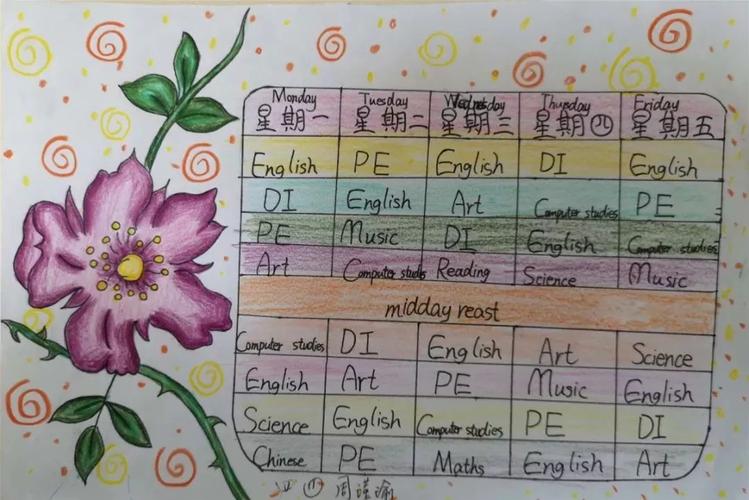 Monday Tuesday Wednesday Thursday Friday
星期一 星期二 星期三 星期四 星期五
English PE English DI English
DI English Art Computer studies PE
PE Music DI English Computer studies
Art Computer studies Reading Science Music
midday reast
Computer studies DI English Art Science
English Art PE Music English
Science English Computer studies PE DI
Chinese PE Maths English Art
四 周谨瑜